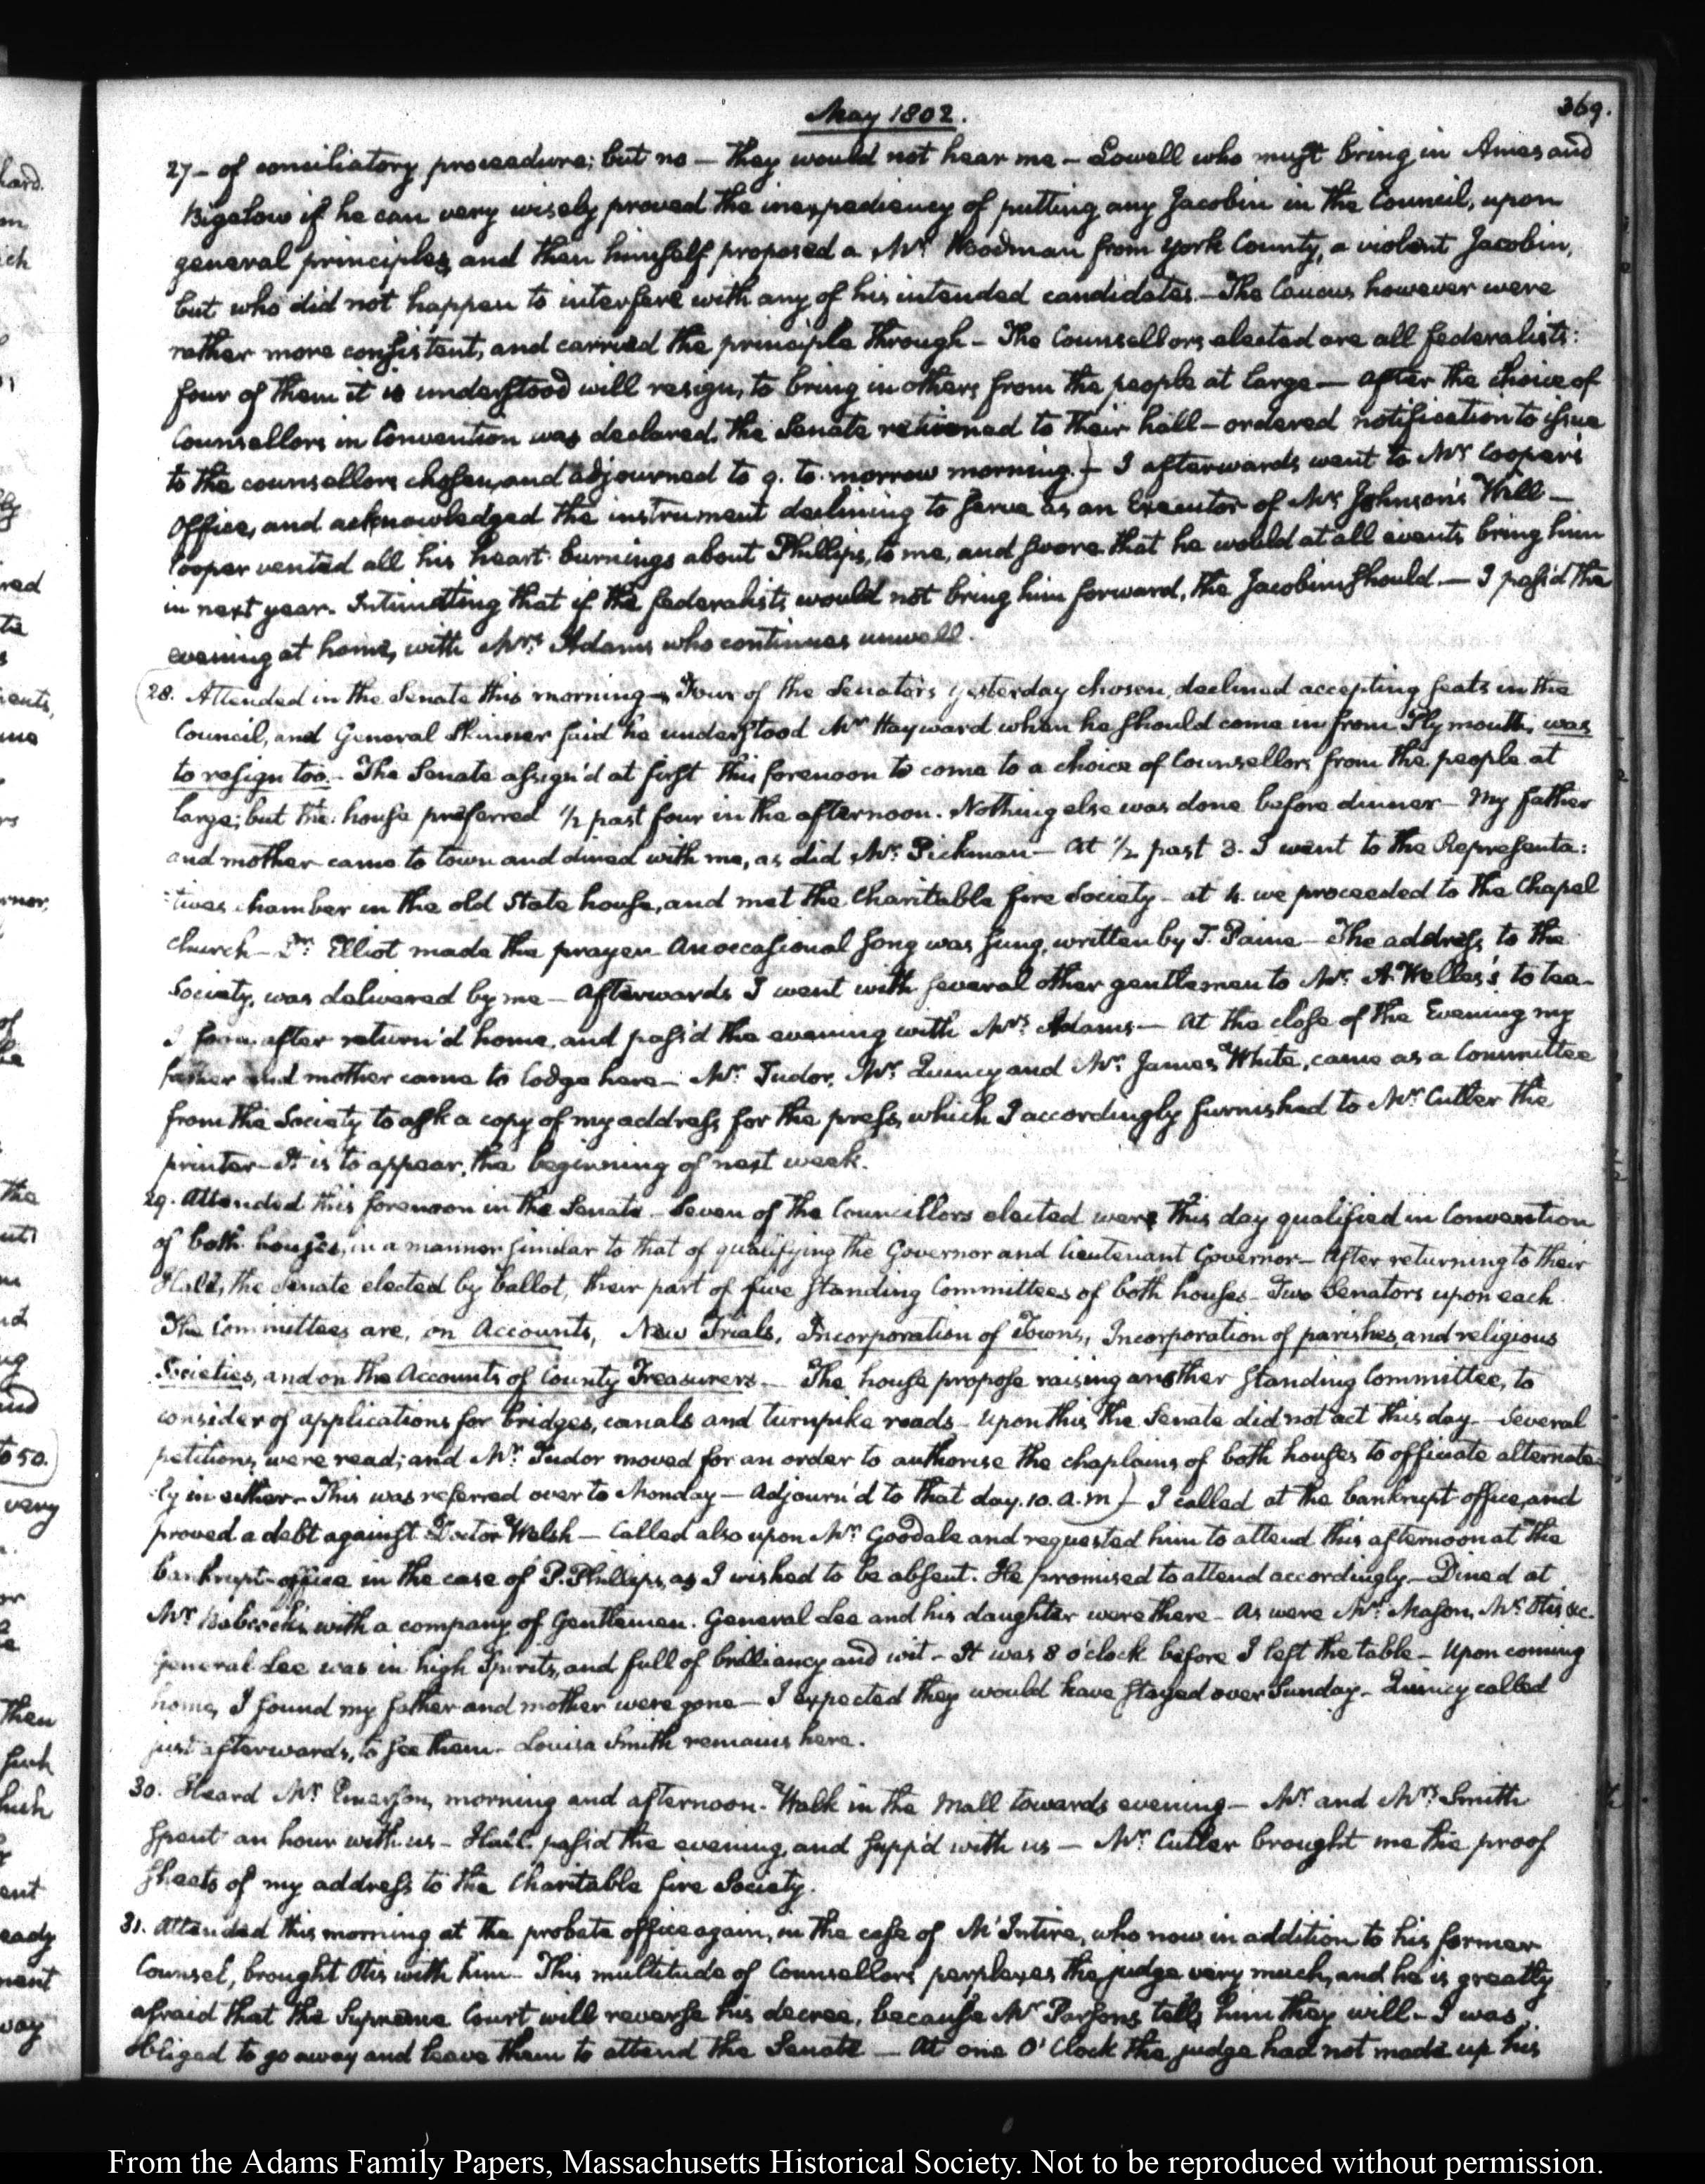 May 1802.
369.
27- of conciliatory proceedure; but no — they would not hear me — Lowell who must bring in Ames and
Bigelow if he can very wisely proved the inexpediency of putting any Jacobin in the Council, upon
general principles, and then himself proposed a Mr. Woodman from York County, a violent Jacobin,
but who did not happen to interfere with any of his intended candidates — The Caucus however were
rather more consistent, and carried the principle through — The Counsellors elected are all federalists:
four of them it is understood will resign, to bring in others from the people at large — After the choice of
Counsellors in Convention was declared, the Senate returned to their hall — ordered notification to issue
to the counsellors chosen, and adjourned to 9. to-morrow morning.) — I afterwards went to Mr. Cooper's
Office, and acknowledged the instrument declining to serve as an Executor of Mr. Johnson's Will —
Cooper vented all his heart-burnings about Phillips, to me, and swore that he would at all events bring him
in next year. Intimating that if the federalists would not bring him forward, the Jacobins should. — I pass'd the
evening at home, with Mrs. Adams who continues unwell.
(28. Attended in the Senate this morning — Four of the Senators yesterday chosen, declined accepting seats in the
Council, and General Skinner said he understood Mr. Hayward when he should come in from Plymouth, was
to resign too. — The Senate assign'd at first this forenoon to come to a choice of Counsellors from the people at
large; but the house preferred ½ past four in the afternoon. Nothing else was done before dinner — My father
and mother came to town and dined with me, as did Mr. Pickman — At ½ past 3. I went to the Representa:
:tives chamber in the old State house, and met the Charitable fire Society — at 4. we proceeded to the Chapel
church — Dr. Elliot made the prayer. An occasional song was sung, written by T. Paine — The address to the
Society, was delivered by me — Afterwards I went with several other gentlemen to Mr. A. Welles's to tea —
I soon after return'd home, and pass'd the evening with Mrs. Adams — At the close of the Evening my
father and mother came to lodge here — Mr. Tudor, Mr. Quincy and Mr. James White, came as a Committee
from the Society to ask a copy of my address for the press, which I accordingly furnished to Mr. Cutler the
printer — It is to appear, the beginning of next week.
29. Attended this forenoon in the Senate — Seven of the Councillors elected were this day qualified in Convention
of both houses, in a manner similar to that of qualifying the Governor and lieutenant Governor — After returning to their
Hall, the Senate elected by ballot, their part of five standing Committees of both houses — Two Senators upon each.
The Committees are, on Accounts, New Trials, Incorporation of Towns, Incorporation of parishes, and religious
Societies, and on the Accounts of County Treasurers — The house propose raising another standing Committee, to
consider of applications for bridges, canals and turnpike roads — Upon this the Senate did not act this day — Several
petitions were read; and Mr. Tudor moved for an order to authorise the chaplains of both houses to officiate alternate-
ly in either — This was referred over to Monday — Adjourn'd to that day. 10. a.m) — I called at the bankrupt office, and
proved a debt against Doctor Welsh — Called also upon Mr. Goodale and requested him to attend this afternoon at the
bankrupt-office in the case of P. Phillips, as I wished to be absent. He promised to attend accordingly — Dined at
Mr. Babcock's, with a company of Gentlemen. General Lee and his daughter were there — As were Mr. Mason, Mr. Otis &c.
General Lee was in high Spirits, and full of brilliancy and wit — It was 8 o'clock before I left the table — Upon coming
home, I found my father and mother were gone — I expected they would have stayed over Sunday — Quincy called
just afterwards, to see them — Louisa Smith remains here.
30. Heard Mr. Emerson, morning and afternoon. Walk in the Mall towards evening — Mr. and Mrs. Smith
spent an hour with us — Hall pass'd the evening, and supp'd with us — Mr. Cutler brought me the proof
sheets of my address to the Charitable fire Society.
31. Attended this morning at the probate office again, in the case of M'Intire, who now in addition to his former
Counsel, brought Otis with him — This multitude of Counsellors perplexes the judge very much, and he is greatly
afraid that the Supreme Court will reverse his decree, because Mr Parsons tells him they will — I was
obliged to go away and leave them to attend the Senate — At one O'Clock the judge had not made up his
From the Adams Family Papers, Massachusetts Historical Society. Not to be reproduced without permission.